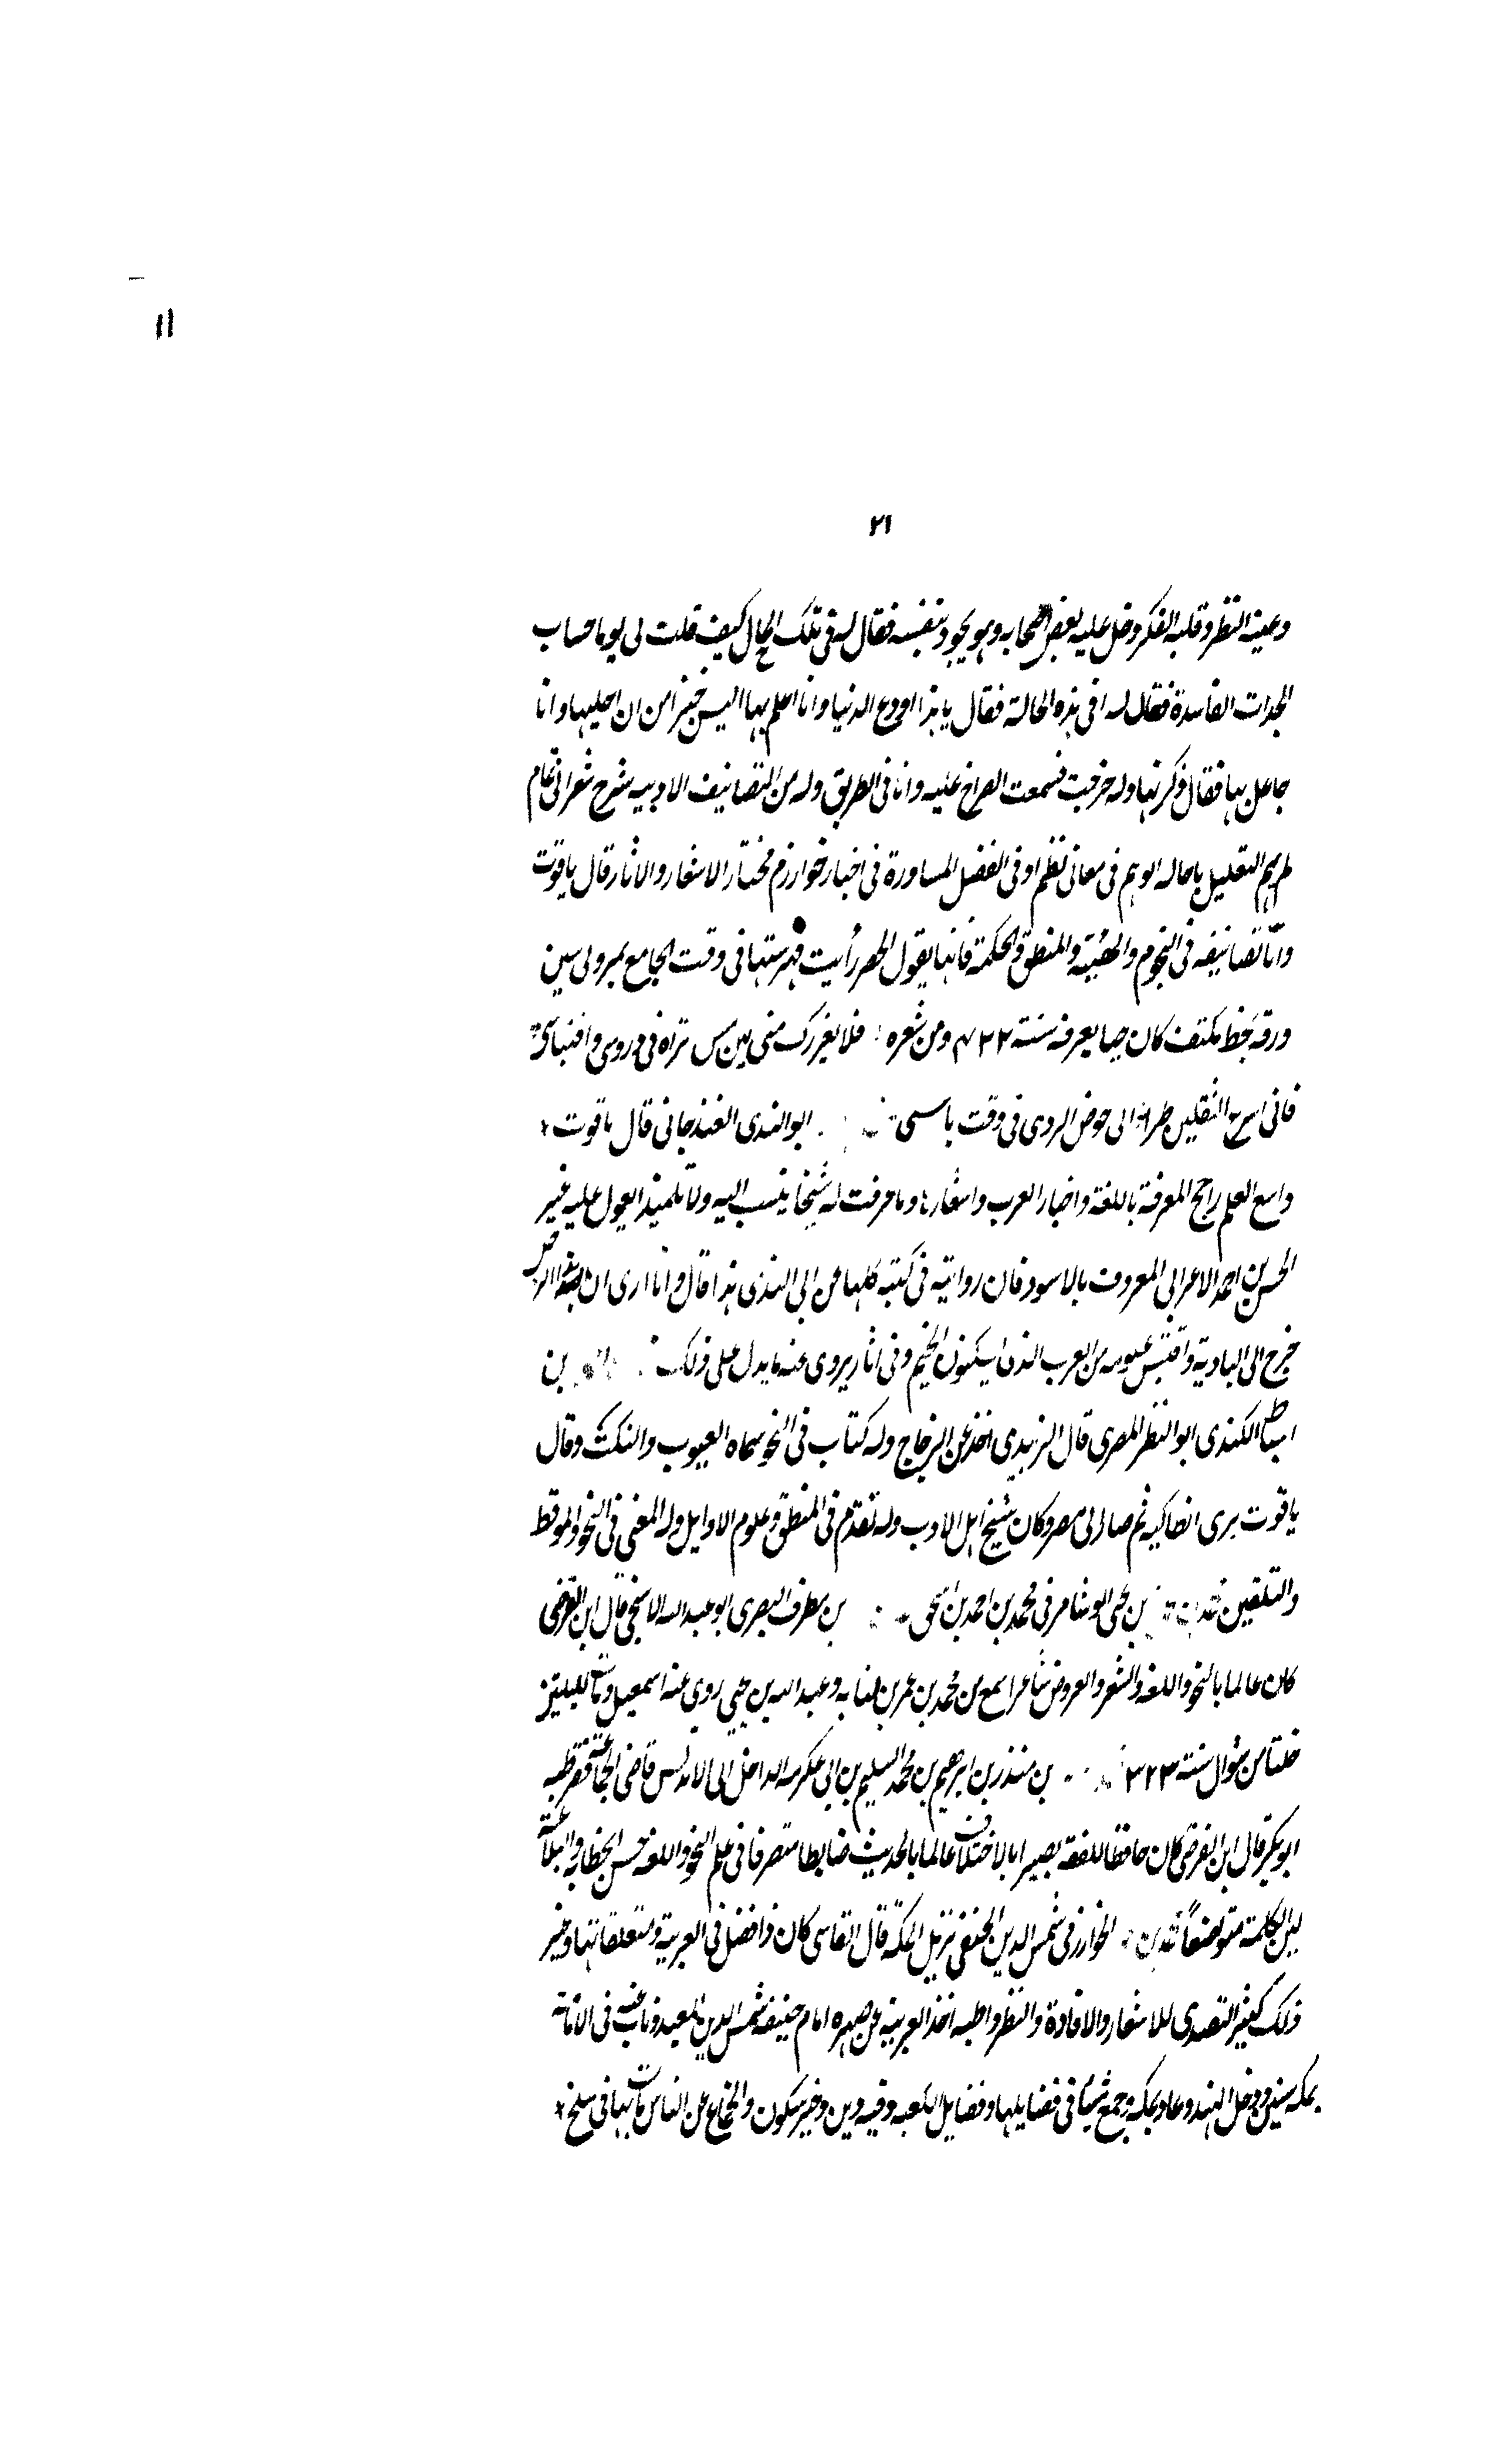 اا
٢١
وعينه النظر وقلبه الفكر دخل عليه بعض اصحابه وهو يجود بنفسه فقال له فى تلك الحال كيف قلت لى يوما حساب
الجدات الفاسدة فقال له افى هذه الحالة فقال يا هذا اودع الدنيا وانا اعلم بها اليس خيرا من ان اخليها وانا
جاهل بها فقال ذكرنها وله خرجت فسمعت الصراخ عليه وانا فى الطريق وله من التصانيف الادبيه شرح شعر ابى تمام
لم يهم التعليل باحاله الوهم فى معانى نظم اوفى الفضل المساورة فى اخبار خوارزم مختار الاشعار والاثار قال ياقوت
واما تصانيفه فى النجوم والهيئة والمنطق والحكمة فانها يقول الحصر رأيت فهرستها فى وقت الجامع بمرو لى سين
ورقه بخط مكتف كان حيا بعرفه سنة ٤٢٢ ومن شعره فلا يغررك منى لين مس تراه فى دروى واقتباسى
فانى اسرع الثقلين طرا الى حوض الردى فى وقت باسى ابو الندى الغندجانى قال ياقوت
واسع العلم راجح المعرفة باللغة واخبار العرب واشعارها وما عرفت له شيخا ينسب اليه ولا تلميذا يعول عليه غير
الحسن بن احمد الاعرابى المعروف بالاسود فان روايته فى كتبه كلها عن ابى الندى هذا قال وانا ارى ان
خرج الى البادية واقتبس علومه من العرب الذين يسكنون الخيم وفى اثار يروى عنه ما يدل على ذلك بن
اسباط الكندى ابو النظر المصرى قال الزبيدى اخذ عن الزجاج وله كتاب فى النحو سماه العيوب والنكت وقال
ياقوت يرى انطاكيه ثم صار الى مصر وكان شيخ اهل الادب وله تقدم فى المنطق وعلوم الاوايل وله المغنى فى النحو والموقظ
والتلقين بن يحيى ابو شامر فى محمد بن احمد بن اسحق بن مطرف البصرى ابو عبد الله الاستجى قال ابن الفرضى
كان عالما بالنحو واللغة والشعر والعروض شاعرا سمع من محمد بن عمر بن لبابه وعبد الله بن يحيى روى عنه اسمعيل ومات لليلتين
خلتا من شوال سنة ٣٢٣ بن منذر بن ابرهيم بن محمد السليم بن ابى عكرمه الداخل الى الاندلس قاضى الجماعة قرطبه
ابو بكر قال ابن الفرضى كان حافظا للفقه بصيرا بالاختلاف عالما بالحديث ضابطا متصرفا فى علم النحو واللغة حسن الخطابه والبلاغة
لين الكلمة متواضعاً الخوارزمى شمس الدين الحنفى نزيل المكة قال الفاسى كان ذا فضل فى العربية ومتعلقاتها وخير
ذلك كثير التصدى للاشعار والافادة والنظر واطبه اخذ العربية عن صهره امام حنيفه شمس الدين المعيد وناب عنه فى الامامة
بمكه سنين ودخل الهند وعاد بمكه وجمع شيئا فى فضايلها وفضايل الكعبه وفيه دين وخير سكون وانجماع عن الناس مات بها فى سلخ